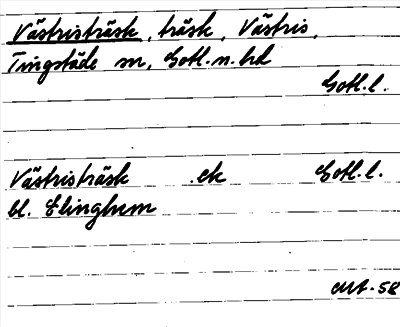 Västristräsk, träsk, Västris,
Tingstäde sn, Gotl. n. hd
Gotl. l.
Västristräsk ek Gotl. l.
bl. Elinghem
MA-58